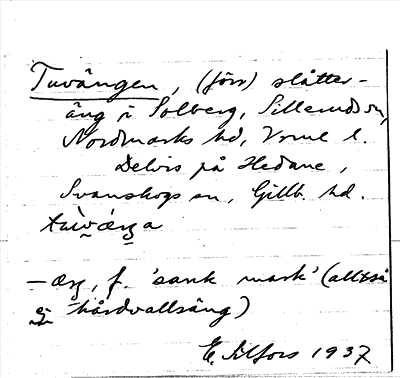 Tuvängen, (förr) slåtter-
äng i Solberg, Sillerud sn,
Nordmarks hd, Vrml l.
Delvis på Hedane,
Svanskogs sn, Gillb. hd.
— äŋ, f. 'sank mark' (alltså
ej hårdvallsäng)
E. Alfors 1937